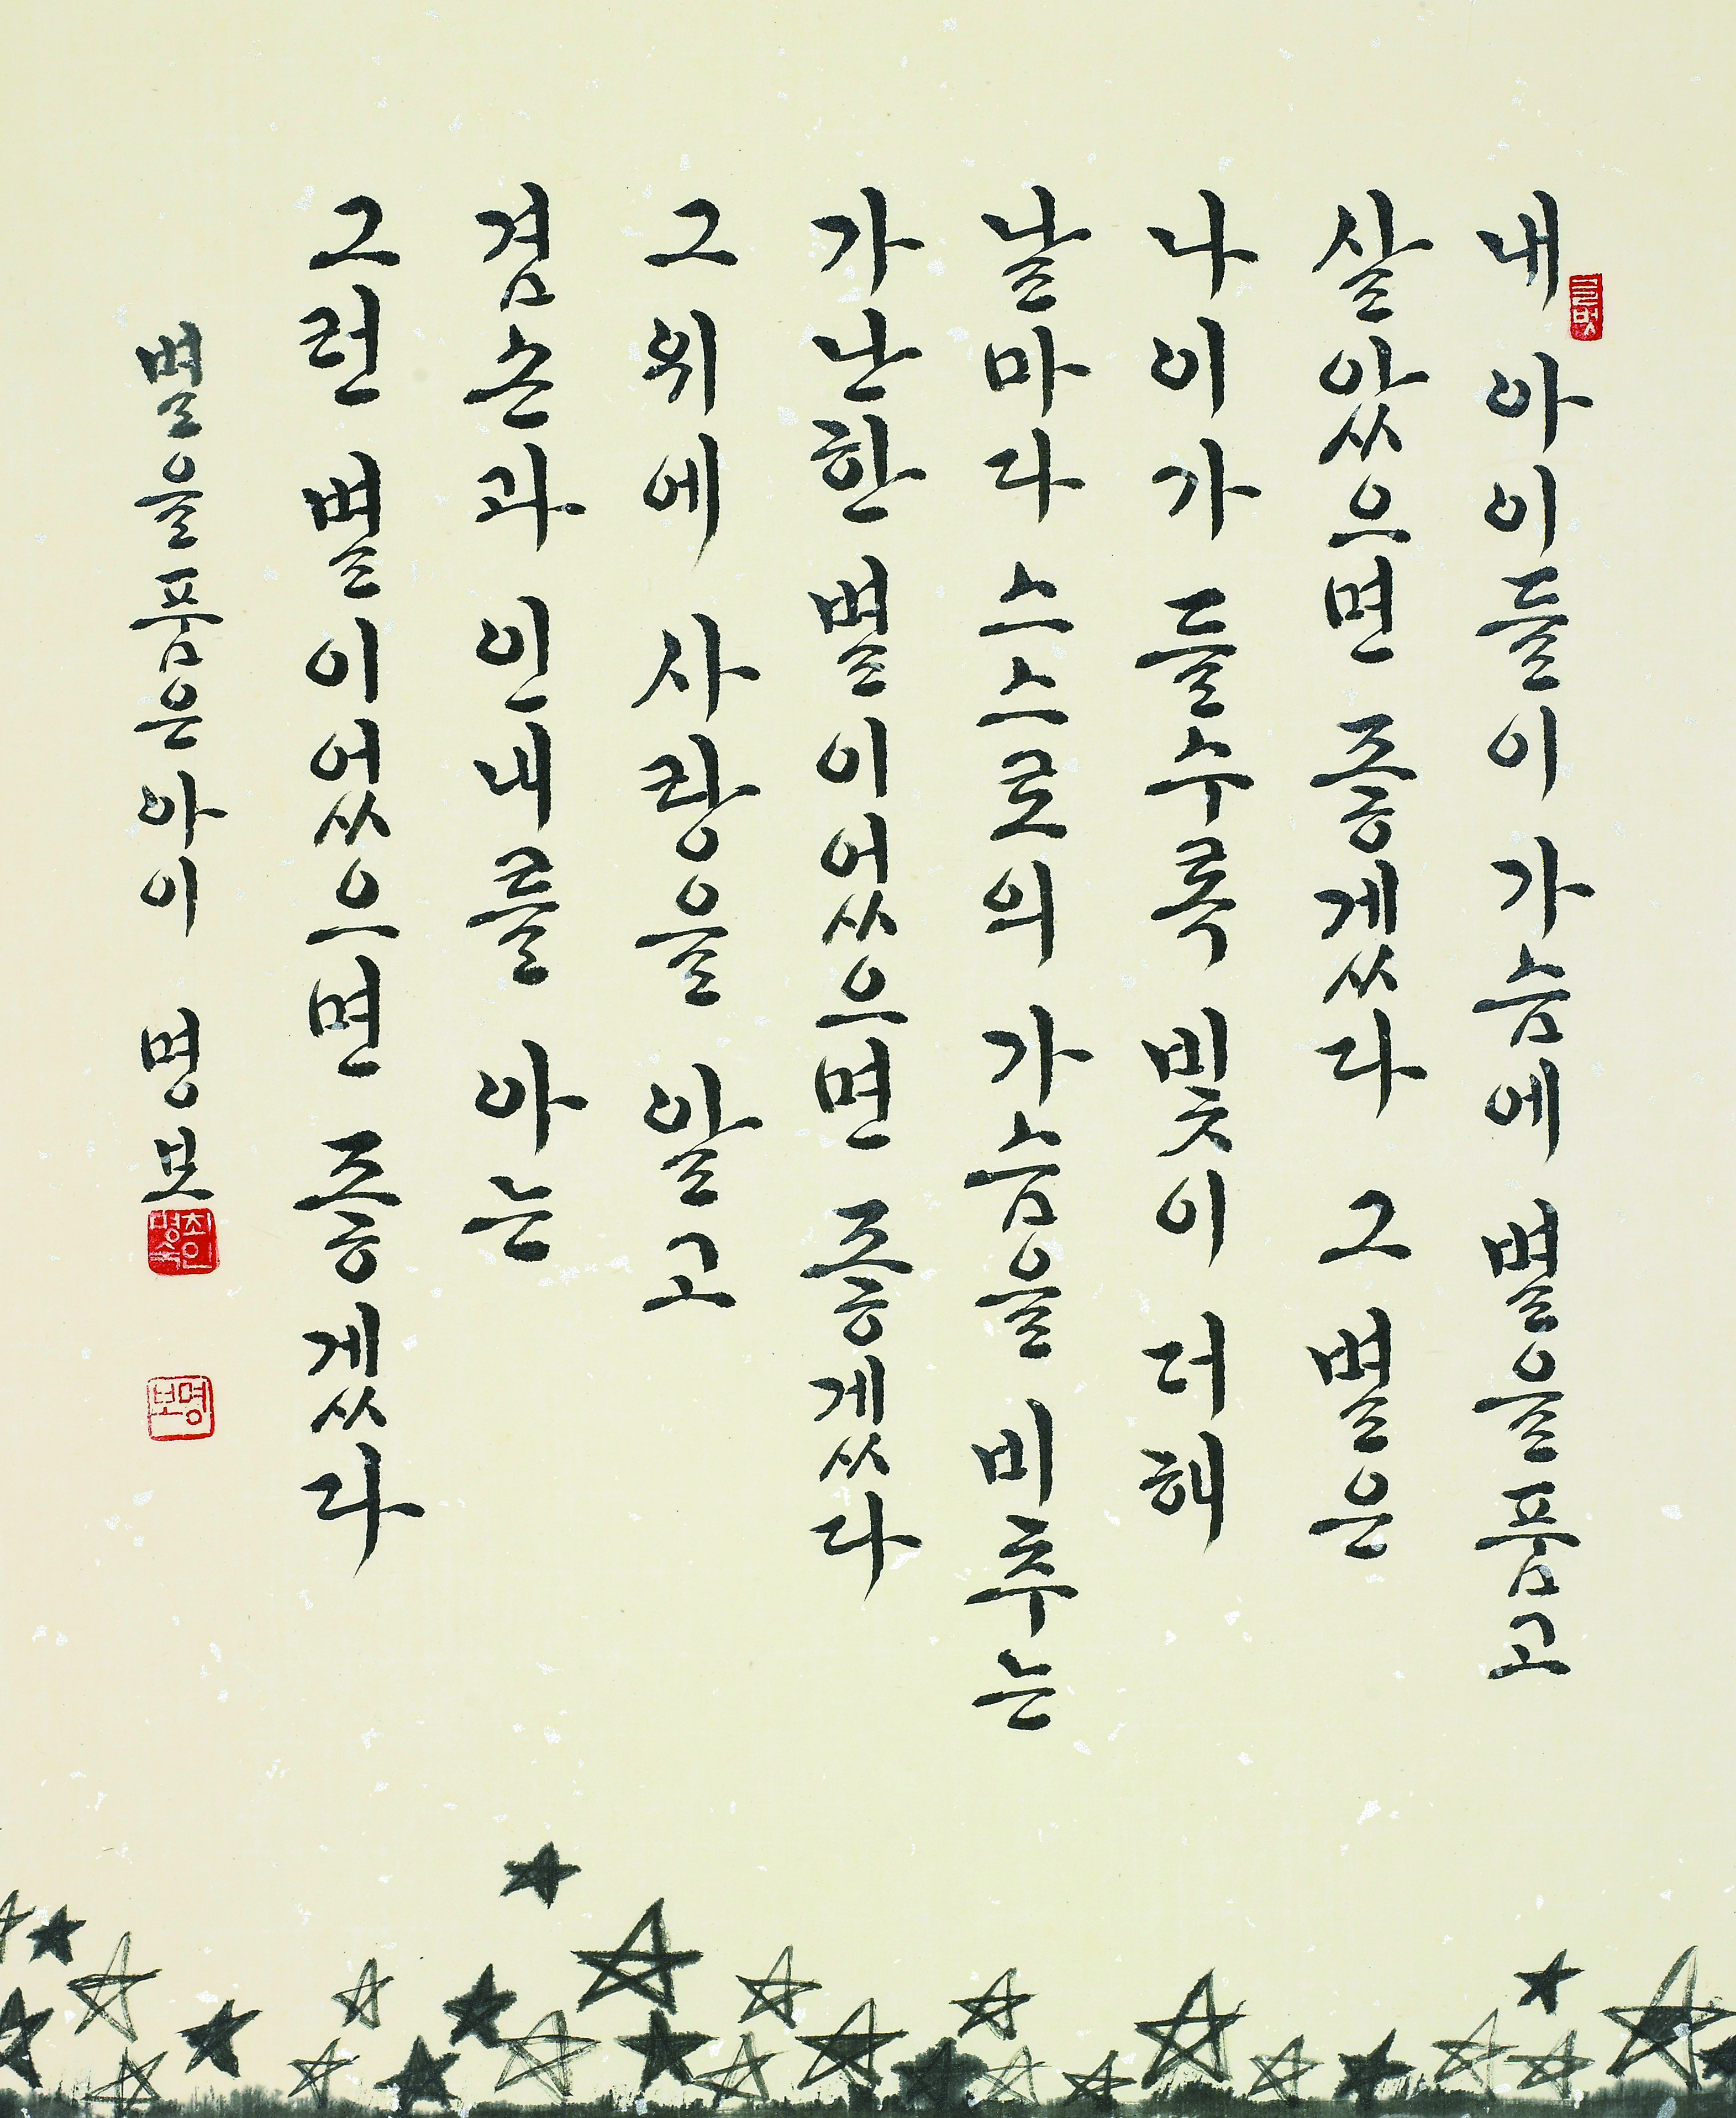 내 아이들이 가슴에 별을 품고
살았으면 좋겠다 그 별은
나이가 들수록 빛이 더해
날마다 스스로의 가슴을 비추는
가난한 별이었으면 좋겠다
그 위에 사랑을 알고
겸손과 인내를 아는
그런 별이었으면 좋겠다
별을 품은 아이 명보
명보